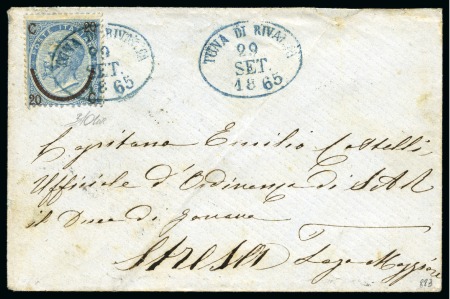 C 20
POSTE ITALIANE
20 C
TUNA DI RIVALTA
29
SET.
1865
TUNA DI RIVALTA
29
SET.
1865
Capitano Emilio Castelli
Ufficiale d'Ordinanza di S.A.R
il Duca di Genova
Stresa Lago Maggiore